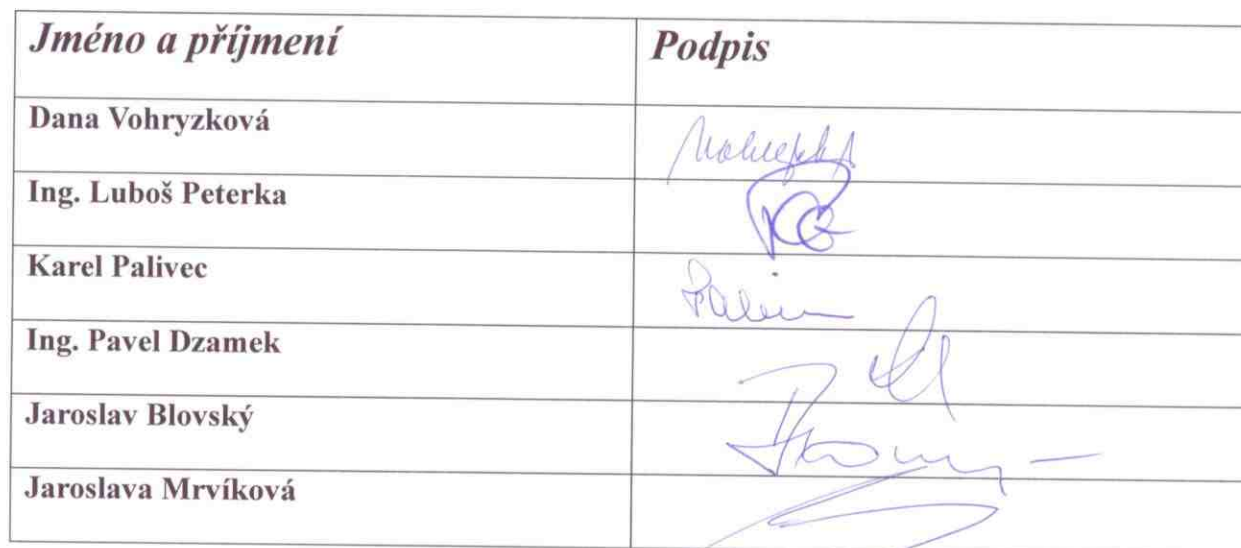 Jméno a příjmení Podpis
Dana Vohryzková
Ing. Luboš Peterka
Karel Palivec
Ing. Pavel Dzamek
Jaroslav Blovský
Jaroslava Mrvíková